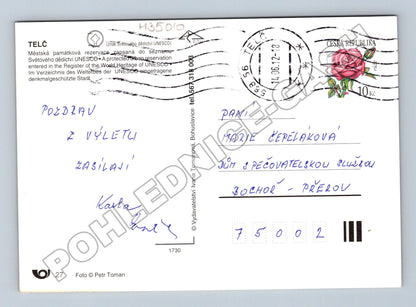 H35010
TELČ
Městská památková rezervace zapsaná do seznamu
Světového dědictví UNESCO • A protected urban reservation
entered in the Register of the World Heritage of UNESCO •
Im Verzeichnis des Welterbes der UNESCO eingetragene
denkmalgeschützte Stadt
588 56 TELČ
14.06.12-18
ČESKÁ REPUBLIKA
10 Kč
POZDRAV
Z VÝLETU
ZASÍLAJÍ
PANÍ
MARIE ČEPELÁKOVÁ
DŮM S PEČOVATELSKOU SLUŽBOU
BOCHOŘ - PŘEROV
75002
© Vydavatelství Ivana Bohuslavice tel. 567 318 003
1730
27
Foto © Petr Toman
POHLEDNICE